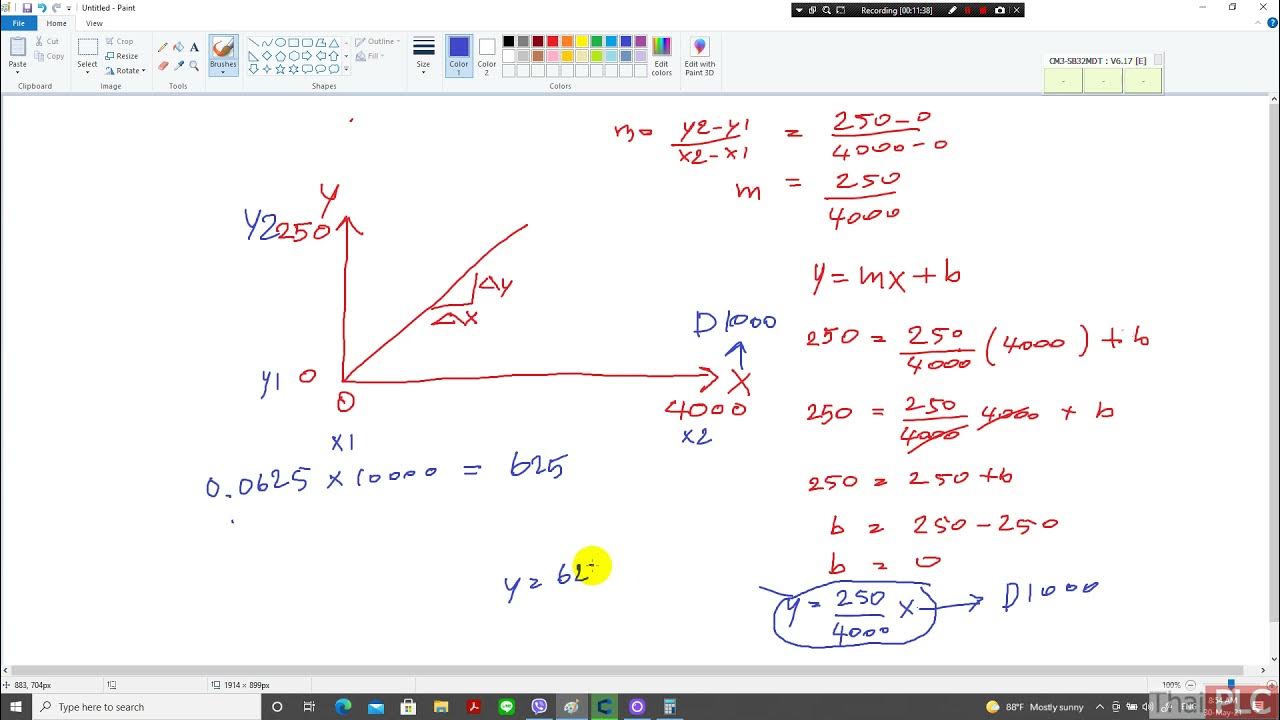 Untitled - Paint
Recording [00:11:38]
File Home View
Paste
Cut
Copy
Clipboard
Select
Crop
Resize
Rotate
Image
Tools
Brushes
Shapes
Outline
Fill
Size
Color 1
Color 2
Colors
Edit colors
Edit with Paint 3D
CM3-SB32MDT : V6.17 [E]
m= y2-y1 / x2-x1 = 250-0 / 4000-0
m = 250 / 4000
y
Y2 250
Δy
Δx
D1000
y1 0
0
X
4000
x1
x2
0.0625 x 10000 = 625
y = 62
y = mx + b
250 = 250 / 4000 (4000) + b
250 = 250 / 4000 4000 + b
250 = 250 + b
b = 250 - 250
b = 0
y = 250 / 4000 x → D1000
883, 704px
1914 × 899px
100%
Type here to search
88°F Mostly sunny
ENG
8:54 AM
30-May-21
ThaiPLC